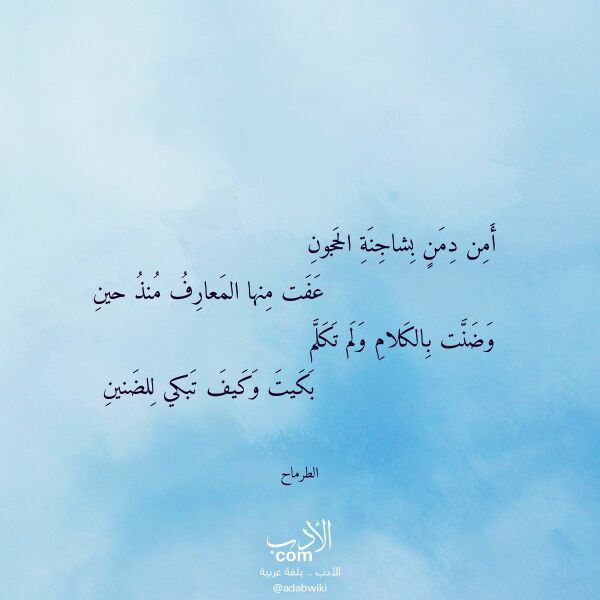 أَمِن دِمَنٍ بِشاجِنَةِ الحَجونِ
عَفَت مِنها المَعارِفُ مُنذُ حينِ
وَضَنَّت بِالكَلامِ وَلَم تَكَلَّم
بَكَيتَ وَكَيفَ تَبكي لِلضَنينِ
الطرماح
الأدب
com
الأدب .. بلغة عربية
@adabwiki